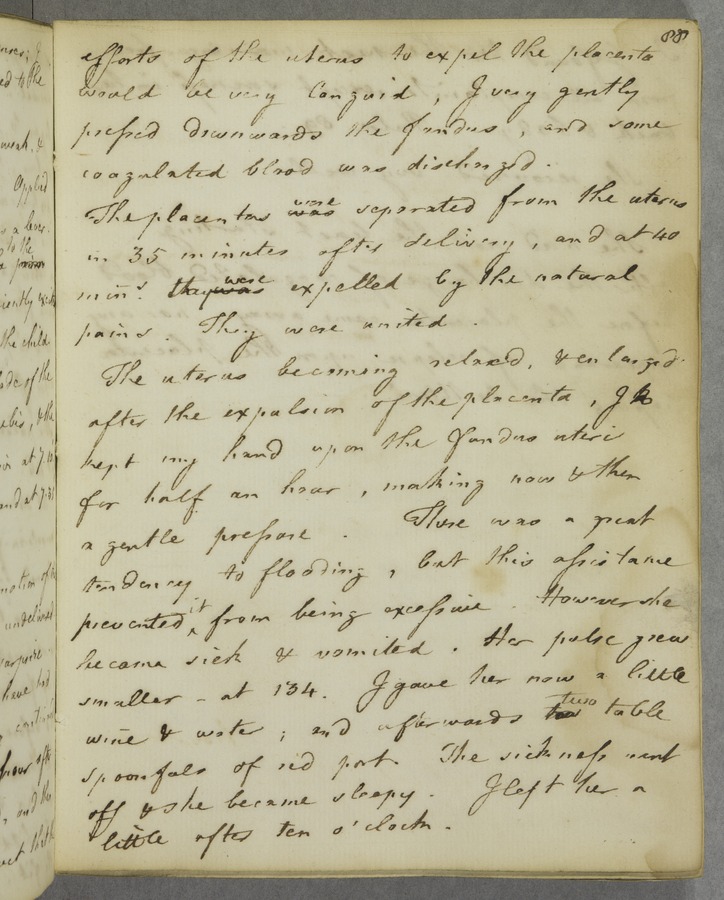 88
efforts of the uterus to expel the placenta
would be very languid, I very gently
pressed downwards the fundus, and some
coagulated blood was discharged.
The placentas were was separated from the uterus
in 35 minutes after delivery, and at 40
mins. they was were expelled by the natural
pains. They were united.
The uterus becoming relaxed, & enlarged
after the expulsion of the placenta, I
kept my hand upon the fundus uteri
for half an hour, making now & then
a gentle pressure. There was a great
tendency to flooding, but this assistance
prevented it from being excessive. However she
became sick & vomited. Her pulse grew
smaller - at 134. I gave her now a little
wine & water; and afterwards two table
spoonfuls of red port. The sickness went
off & she became sleepy. I left her a
little after ten o'clock.